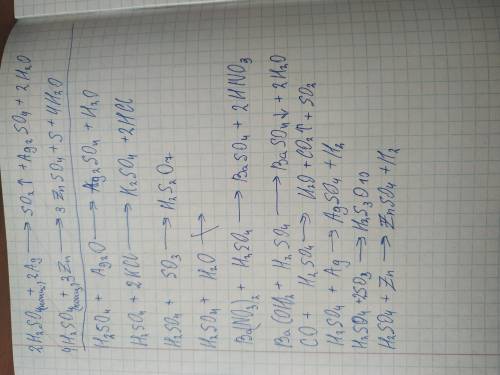 2H₂SO₄(конц.) + 2Ag ⟶ SO₂↑ + Ag₂SO₄ + 2H₂O
4H₂SO₄(конц.) + 3Zn ⟶ 3ZnSO₄ + S + 4H₂O
H₂SO₄ + Ag₂O ⟶ Ag₂SO₄ + H₂O
H₂SO₄ + 2KCl ⟶ K₂SO₄ + 2HCl
H₂SO₄ + SO₃ ⟶ H₂S₂O₇
H₂SO₄ + H₂O
Ba(NO₃)₂ + H₂SO₄ ⟶ BaSO₄ + 2HNO₃
Ba(OH)₂ + H₂SO₄ ⟶ BaSO₄↓ + 2H₂O
CO + H₂SO₄ ⟶ H₂O + CO₂↑ + SO₂
H₂SO₄ + Ag ⟶ AgSO₄ + H₂
H₂SO₄ + 2SO₃ ⟶ H₂S₃O₁₀
H₂SO₄ + Zn ⟶ ZnSO₄ + H₂